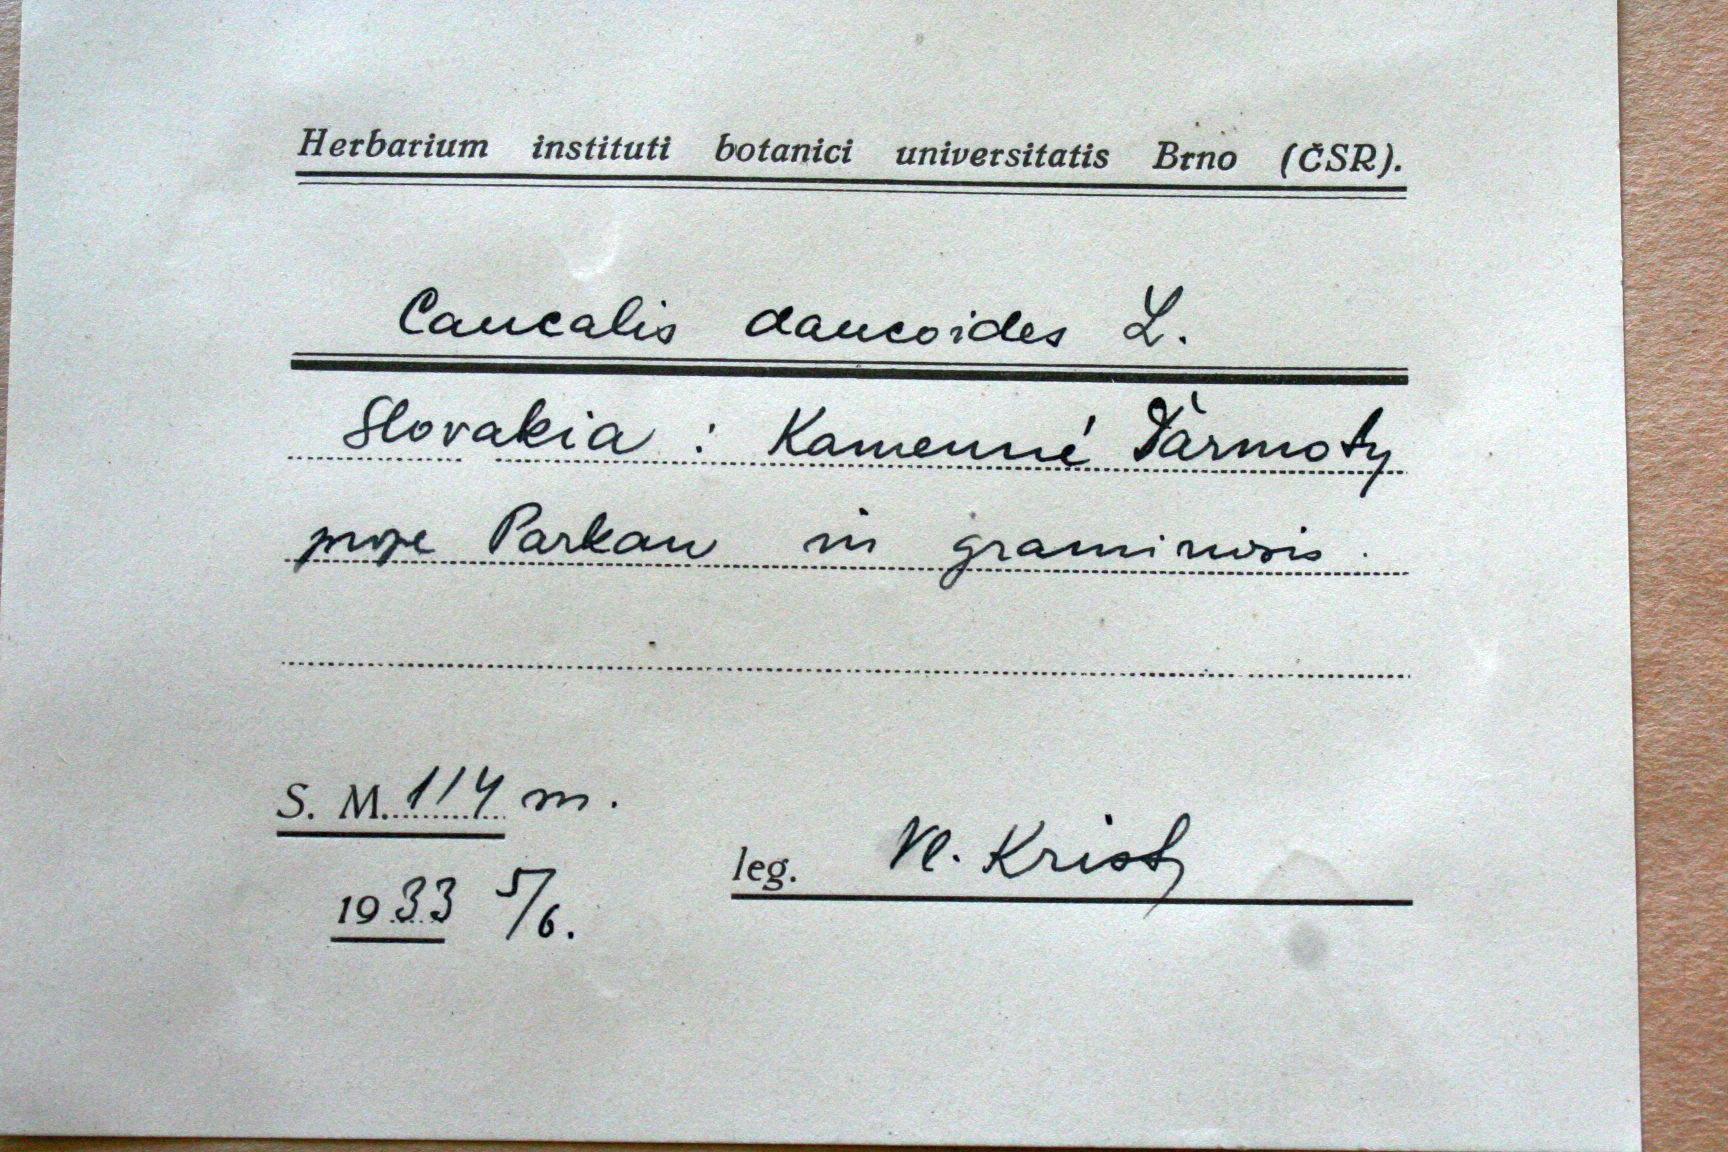 Herbarium instituti botanici universitatis Brno (ČSR).
Caucalis daucoides L.
Slovakia : Kamenné Ďarmoty
prope Parkan in graminosis.
S. M. 114 m.
leg. Vl. Krist
1933 5/6.